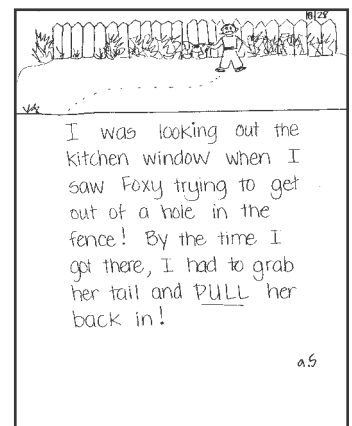 8/28
I was looking out the
kitchen window when I
saw Foxy trying to get
out of a hole in the
fence! By the time I
got there, I had to grab
her tail and PULL her
back in!
a.S